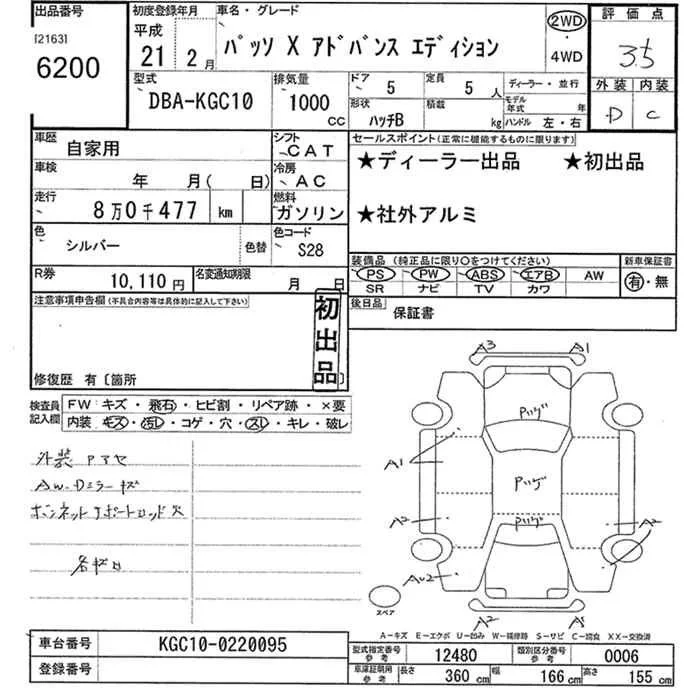 出品番号
[2163]
6200
初度登録年月
平成
21 2月
車名・グレード
パッソ X アドバンス エディション
2WD
4WD
評価点
3.5
外装 内装
D C
型式
DBA-KGC10
排気量
1000
CC
ドア 5
定員 5人
ディーラー・並行
形状
ハッチB
積載 kg
モデル年式 年
ハンドル 左・右
車歴
自家用
シフト
CAT
車検
年 月( 日)
冷房
AC
走行
8万0千477 km
燃料
ガソリン
色
シルバー
色替
色コード
S28
R券
10,110円
名変通知期限
月 日
セールスポイント(正常に機能するものに限ります)
★ディーラー出品 ★初出品
★社外アルミ
装備品 (純正品に限り○をつけてください)
PS PW ABS エアB AW
SR ナビ TV カワ
新車保証書
有・無
後日品
保証書
注意事項申告欄(不具合内容等は具体的に記入して下さい)
初出品
修復歴 有〔箇所 〕
検査員記入欄
FW キズ・飛石・ヒビ割・リペア跡・×要
内装 キズ・汚レ・コゲ・穴・スレ・キレ・破レ
外装
AW・Dミラーキズ
ボンネットサポートロッド欠
A3 A1
Pハゲ
A1
Pハゲ
Pハゲ
A2 A2
スペア
A2 A1
A-キズ E-エクボ U-凹み W-補修跡 S-サビ C-腐食 XX-交換済
車台番号
KGC10-0220095
登録番号
型式指定番号
参考
12480
類別区分番号
参考
0006
車庫証明用
参考
長さ 360 cm
幅 166 cm
高さ 155 cm